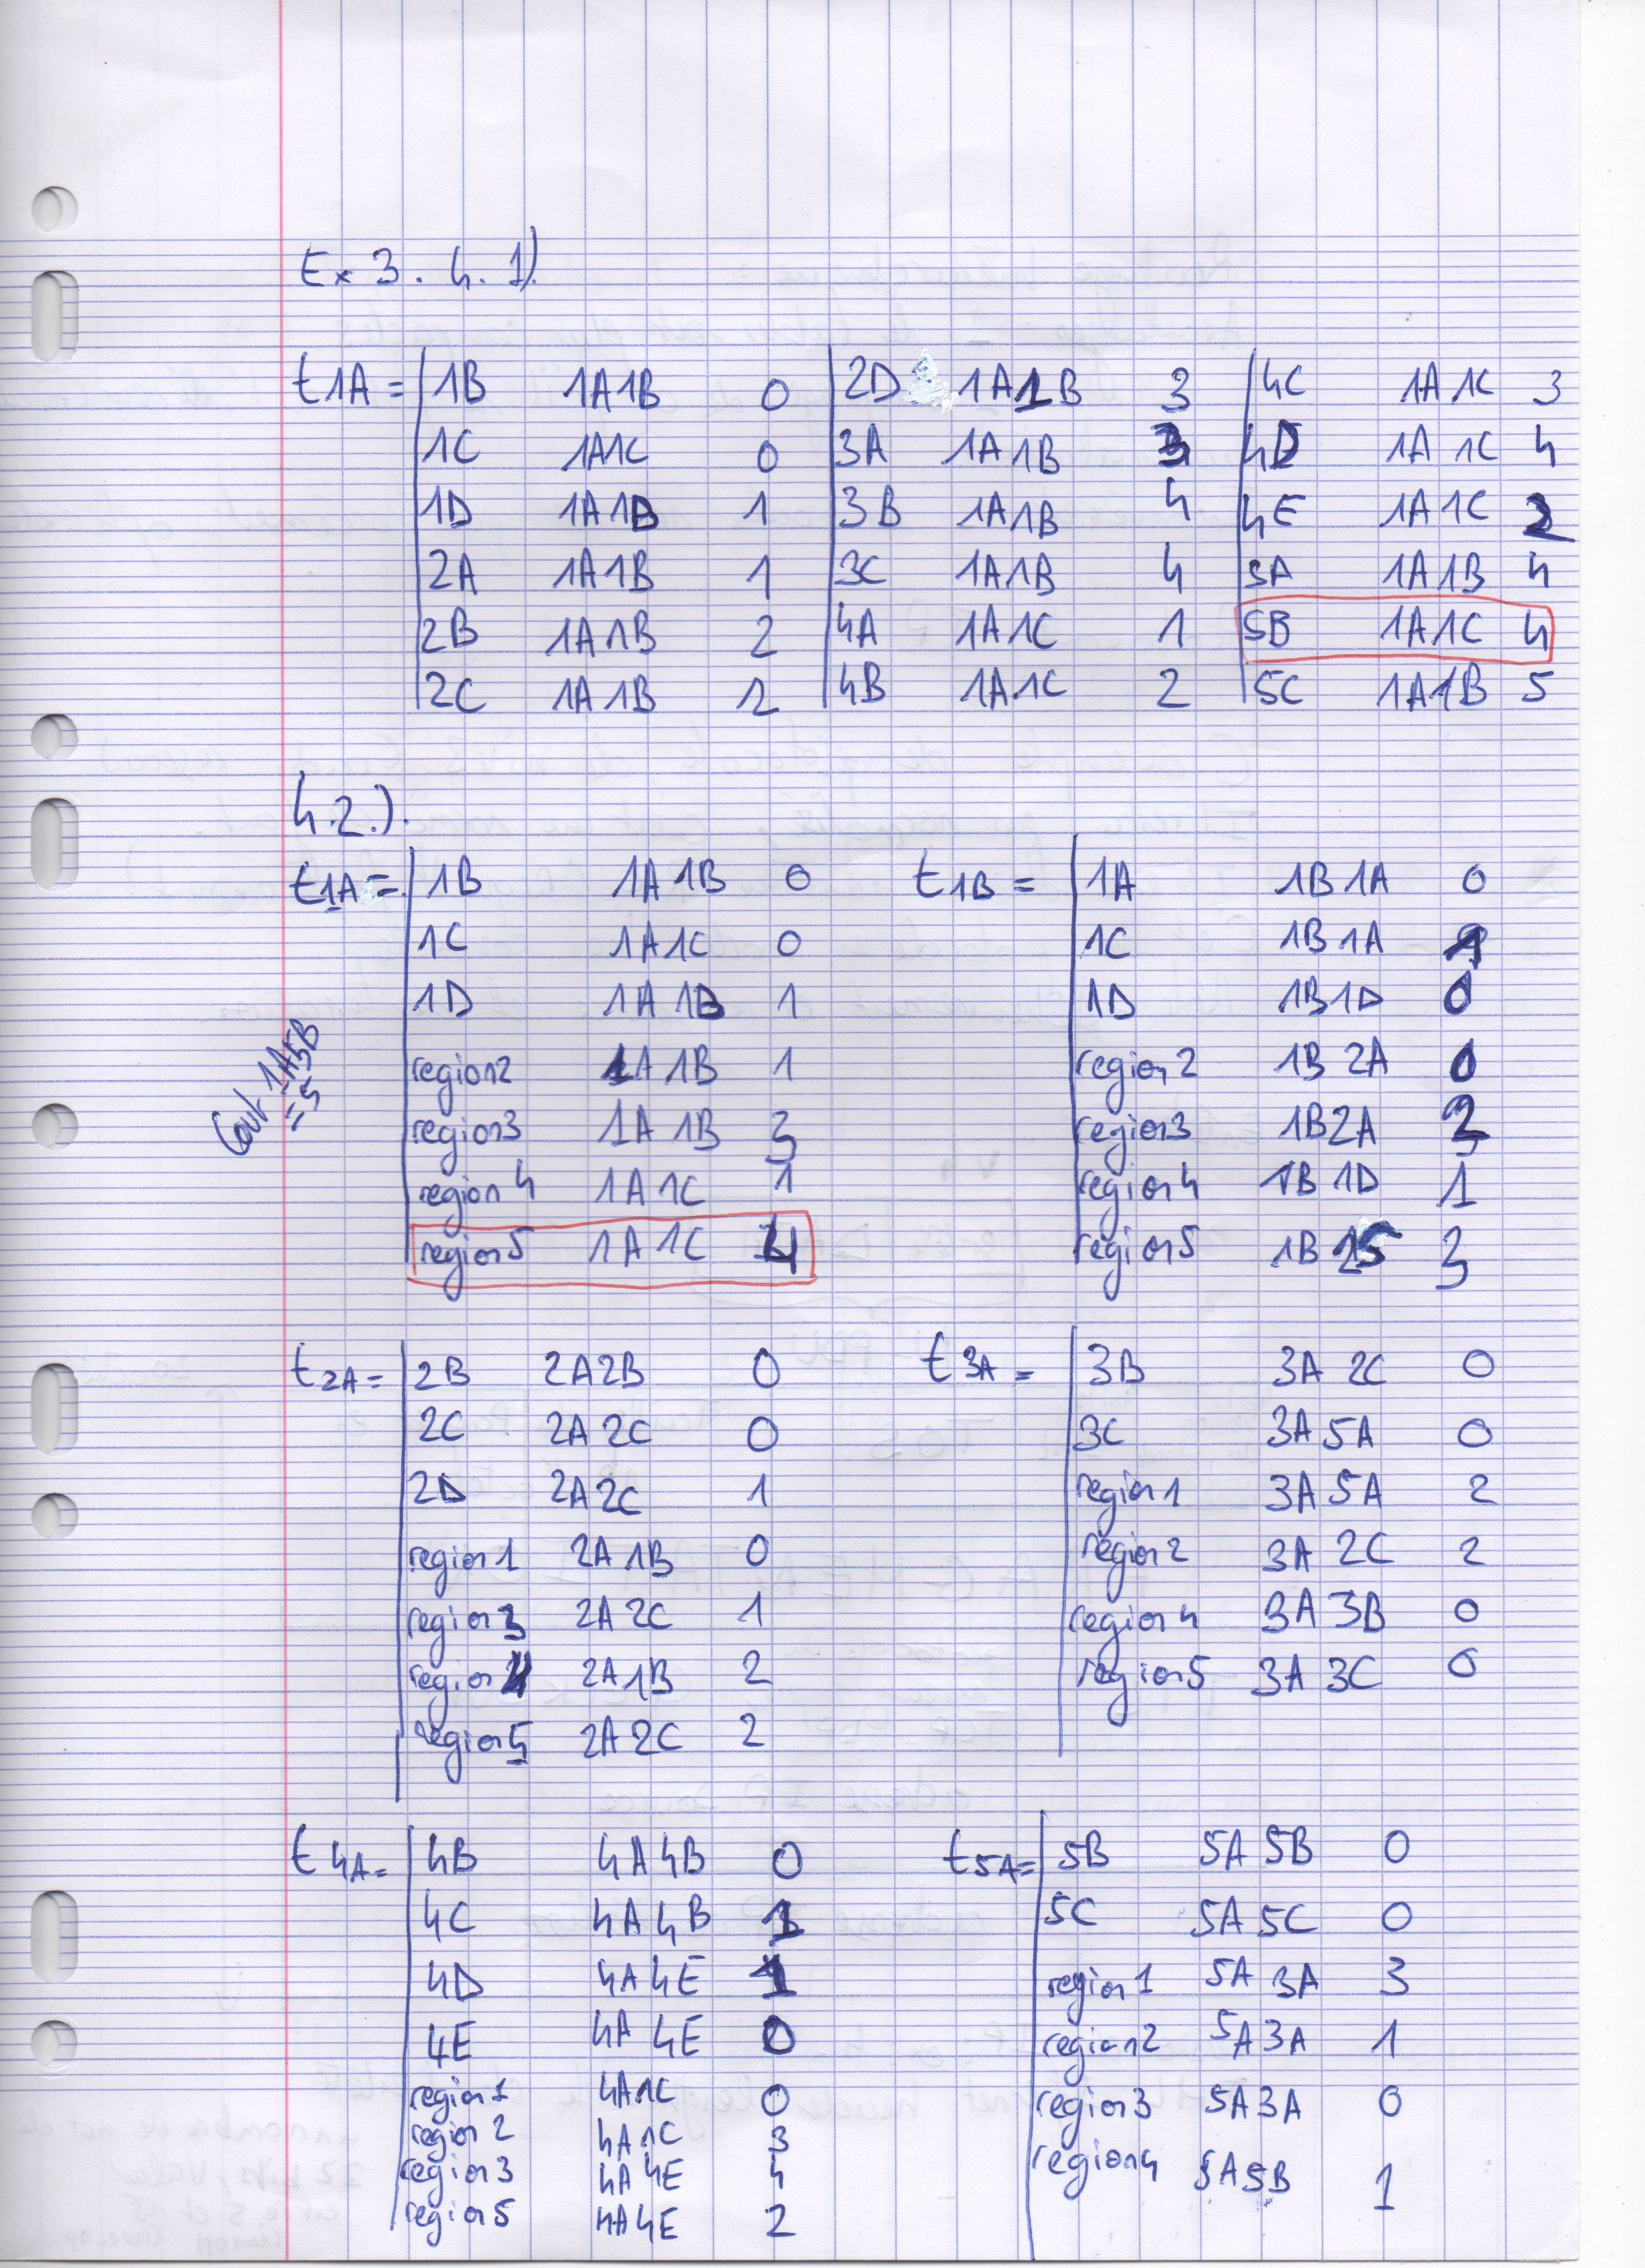 Ex 3. 4. 1)
t1A = 1B 1A1B 0 2D 1A1B 3 4C 1A1C 3
1C 1A1C 0 3A 1A1B 4D 1A1C 4
1D 1A1B 1 3B 1A1B 4 4E 1A1C 2
2A 1A1B 1 3C 1A1B 4 5A 1A1B 4
2B 1A1B 2 4A 1A1C 1 5B 1A1C 4
2C 1A1B 2 4B 1A1C 2 5C 1A1B 5
4.2.)
t1A = 1B 1A1B 0
1C 1A1C 0
1D 1A1B 1
region2 1A1B 1
region3 1A1B 3
region4 1A1C 1
region5 1A1C 4
Cout 1A5B
= 5
t1B = 1A 1B1A 0
1C 1B1A 1
1D 1B1D 0
region2 1B2A 0
region3 1B2A 2
region4 1B1D 1
region5 1B 3
t2A = 2B 2A2B 0
2C 2A2C 0
2D 2A2C 1
region1 2A1B 0
region3 2A2C 1
region4 2A1B 2
region5 2A2C 2
t3A = 3B 3A2C 0
3C 3A5A 0
region1 3A5A 2
region2 3A2C 2
region4 3A3B 0
region5 3A3C 0
t4A = 4B 4A4B 0
4C 4A4B 1
4D 4A4E 1
4E 4A4E 0
region1 4A1C 0
region2 4A1C 3
region3 4A4E 4
region5 4A4E 2
t5A = 5B 5A5B 0
5C 5A5C 0
region1 5A3A 3
region2 5A3A 1
region3 5A3A 0
region4 5A5B 1